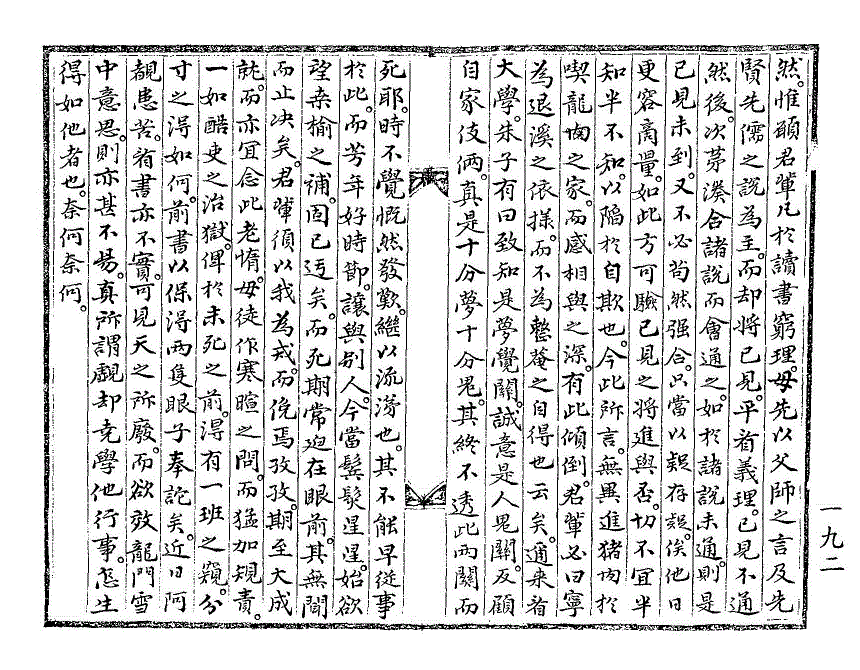 然。惟願君輩凡於讀書窮理。毋先以父師之言及先
賢先儒之說為主。而却將己見。平看義理。己見不通
然後。次第湊合諸說而會通之。如於諸說未通。則是
己見未到。又不必苟然强合。只當以疑存疑。俟他日
更容商量。如此方可驗己見之將進與否。切不宜半
知半不知。以陷於自欺也。今此所言。無異進猪肉於
喫龍肉之家。而感相與之深。有此傾倒。君輩必曰寧
為退溪之依㨾。而不為整菴之自得也云矣。邇来看
大學。朱子有曰致知是夢覺關。誠意是人鬼關。反顧
自家伎俩。真是十分夢十分鬼。其終不透此两關而
死耶。時不覺慨然發歎。繼以流涕也。其不能早從事
於此。而芳年好時節。讓與別人。今當鬂髮星星。始欲
望桒榆之補。固已迂矣。而死期常迫在眼前。其無聞
而止决矣。君輩須以我為戒。而俛焉孜孜。期至大成
就。而亦宜念此老惰。毋徒作寒暄之問。而猛加規責。
一如酷吏之治獄。俾於未死之前。得有一班之窺。分
寸之得如何。前書以保得两隻眼子奉詑矣。近日阿
覩患苦。看書亦不實。可見天之所廢。而欲效龍門雪
中意思。則亦甚不易。真所謂覷却堯學他行事。怎生
得如他者也。奈何奈何。
一九二